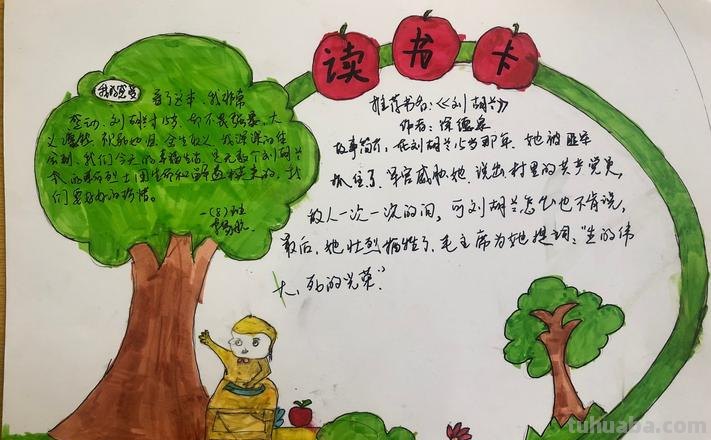 读书卡
我的感受
看了这本，我非常
感动，刘胡兰才15岁，却不畏强暴、大
义凛然、视死如归、舍生取义，我深深的体
会到，我们今天的幸福生活，是无数个刘胡兰
的革命烈士用生命和
们要好好的珍惜。
一(8)班
推荐书名：《刘胡兰》
作者：徐德泉
故事简介：在刘胡兰15岁那年，她被匪军
抓住了，军官威胁她，说出村里的共产党员，
敌人一次一次的问，可刘胡兰怎么也不肯说，
最后，她壮烈牺牲了，毛主席为她提词：“生的伟
大，死的光荣”
tuhuaba.com